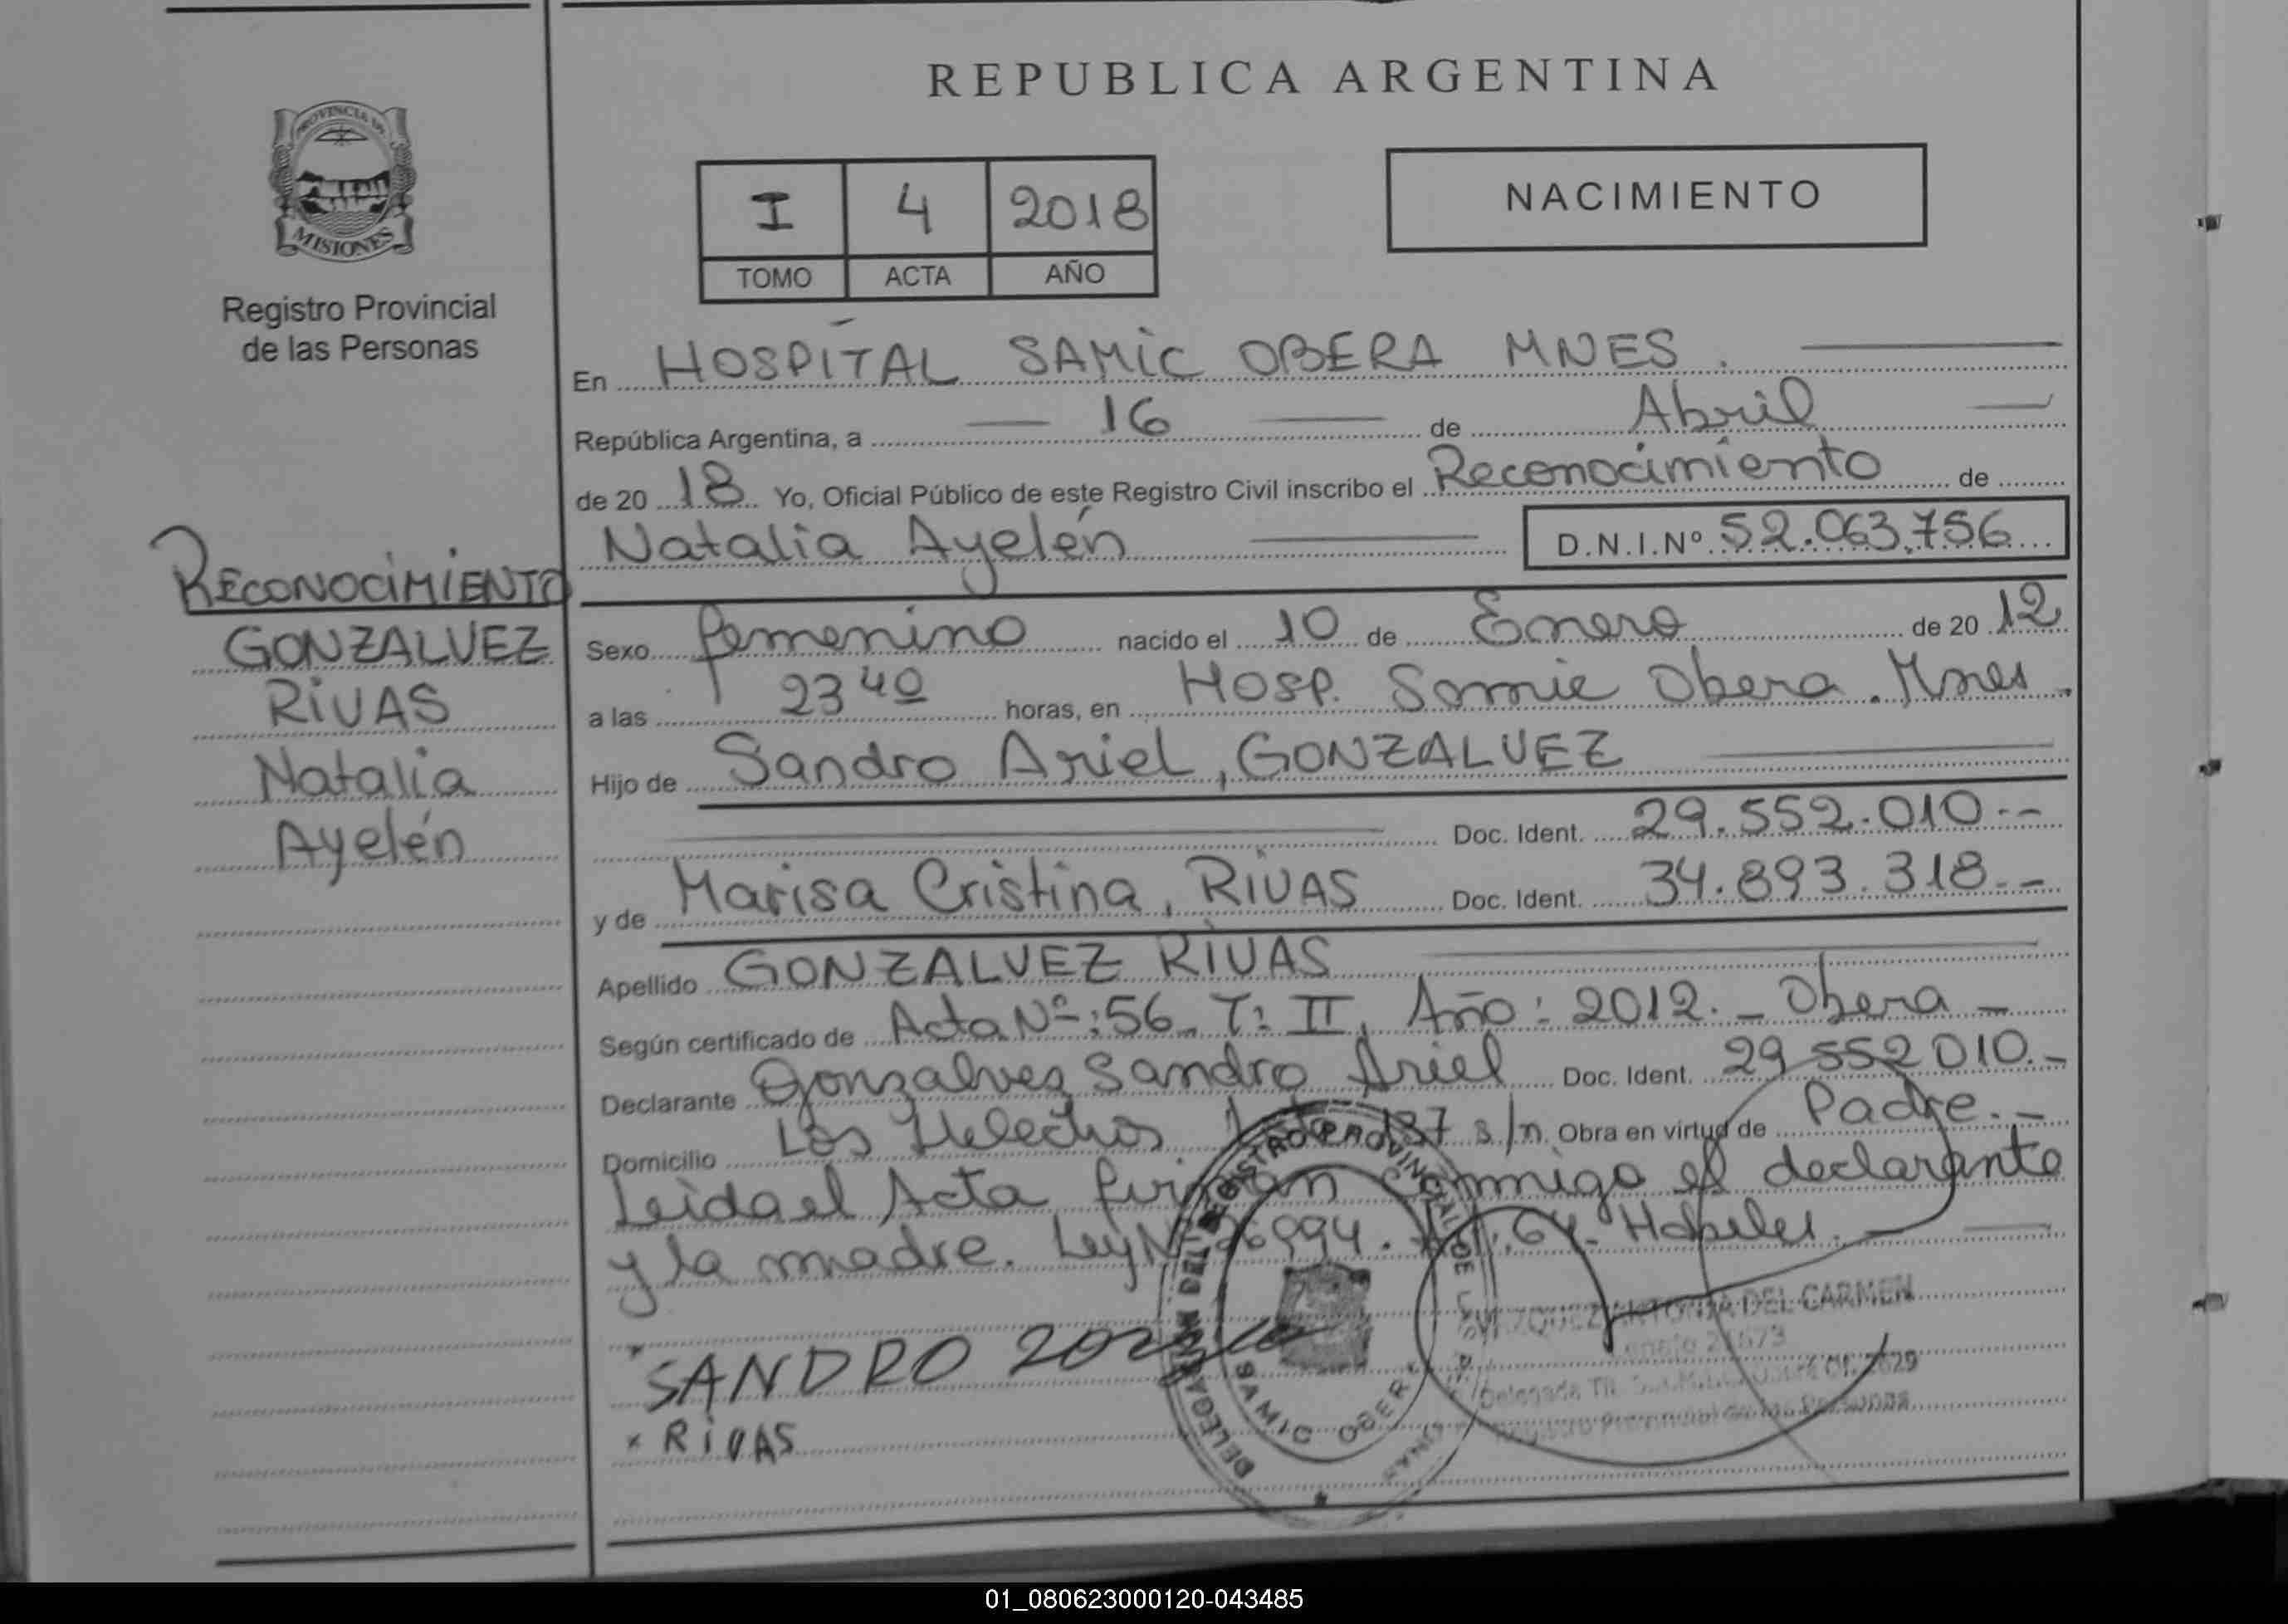 REPUBLICA ARGENTINA
PROVINCIA DE
MISIONES
Registro Provincial
de las Personas
I 4 2018
TOMO ACTA AÑO
NACIMIENTO
En HOSPITAL SAMIC OBERA MNES.
República Argentina, a 16 de Abril
de 20 18 Yo, Oficial Público de este Registro Civil inscribo el Reconocimiento de
Natalia Ayelén D.N.I.Nº 52.063.756
RECONOCIMIENTO
GONZALVEZ
RIVAS
Natalia
Ayelén
Sexo femenino nacido el 10 de Enero de 20 12
a las 23 40 horas, en Hosp. Samic Obera. Mnes.
Hijo de Sandro Ariel, GONZALVEZ
Doc. Ident. 29.552.010.--
y de Marisa Cristina, RIVAS Doc. Ident. 34.893.318.--
Apellido GONZALVEZ RIVAS
Según certificado de Acta Nº:56. T: II, Año: 2012. - Obera -
Declarante Gonzalvez Sandro Ariel Doc. Ident. 29 552 010.-
Domicilio Los Helechos s/n. Obra en virtud de Padre.-
Leida el Acta firman conmigo el declarante
y la madre. Ley Nº 26994.
DELEGA
REGISTRO PROVINCIAL DE
SAMIC OBERA
DEL CARMEN
Registro Provincial de las Personas
SANDRO
x RIVAS
01_080623000120-043485